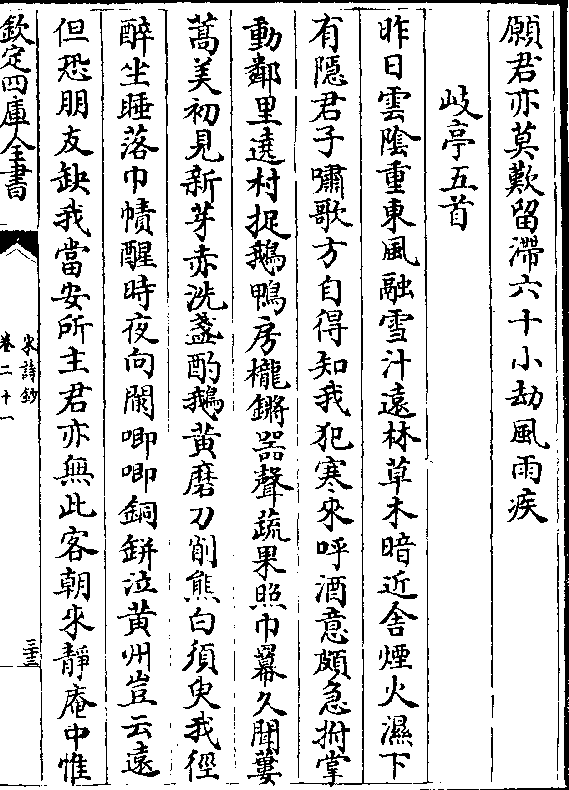 願君亦莫歎留滯六十小劫風雨疾
岐亭五首
昨日雲陰重東風融雪汁遠林草木暗近舍煙火濕下
有隱君子嘯歌方自得知我犯寒來呼酒意頗急拊掌
動鄰里遶村捉鵝鴨房櫳鏘器聲蔬果照巾羃久聞蔞
蒿美初見新芽赤洗盞酌鵝黃磨刀削熊白須臾我徑
醉坐睡落巾幘醒時夜向闌唧唧銅缾泣黃州豈云遠
但恐朋友缺我當安所主君亦無此客朝來靜庵中惟
欽定四庫全書
宋詩鈔
卷二十一